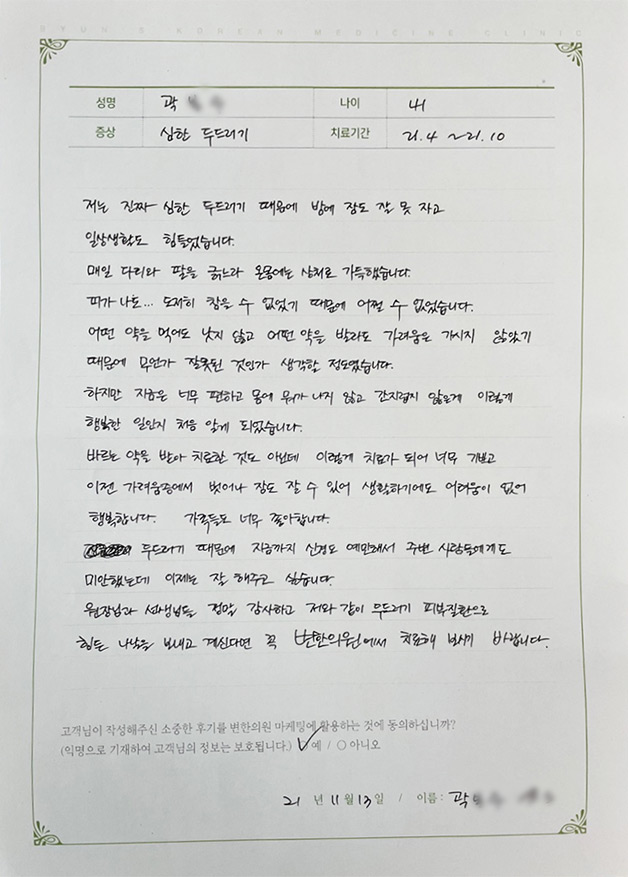 BYUN'S KOREAN MEDICINE CLINIC
성명 곽 나이 41
증상 심한 두드러기 치료기간 21.4 ~21.10
저는 진짜 심한 두드러기 때문에 밤에 잠도 잘 못 자고
일상생활도 힘들었습니다.
매일 다리와 팔을 긁느라 온몸에는 상처로 가득했습니다.
피가 나도... 도저히 참을 수 없었기 때문에 어쩔 수 없었습니다.
어떤 약을 먹어도 낫지 않고 어떤 약을 발라도 가려움은 가시지 않았기
때문에 무언가 잘못된 것인가 생각할 정도였습니다.
하지만 지금은 너무 편하고 몸에 뭐가 나지 않고 간지럽지 않은게 이렇게
행복한 일인지 처음 알게 되었습니다.
바르는 약을 받아 치료한 것도 아닌데 이렇게 치료가 되어 너무 기쁘고
이젠 가려움증에서 벗어나 잠도 잘 수 있어 생활하기에도 어려움이 없어
행복합니다. 가족들도 너무 좋아합니다.
두드러기 때문에 지금까지 신경도 예민해서 주변 사람들에게도
미안했는데 이제는 잘 해주고 싶습니다.
원장님과 선생님들 정말 감사하고 저와 같이 두드러기 피부질환으로
힘든 나날을 보내고 계신다면 꼭 변한의원에서 치료해 보시기 바랍니다.
고객님이 작성해주신 소중한 후기를 변한의원 마케팅에 활용하는 것에 동의하십니까?
(익명으로 기재하여 고객님의 정보는 보호됩니다.) ✓예 / ○아니오
21 년 11 월 13 일 / 이름 : 곽